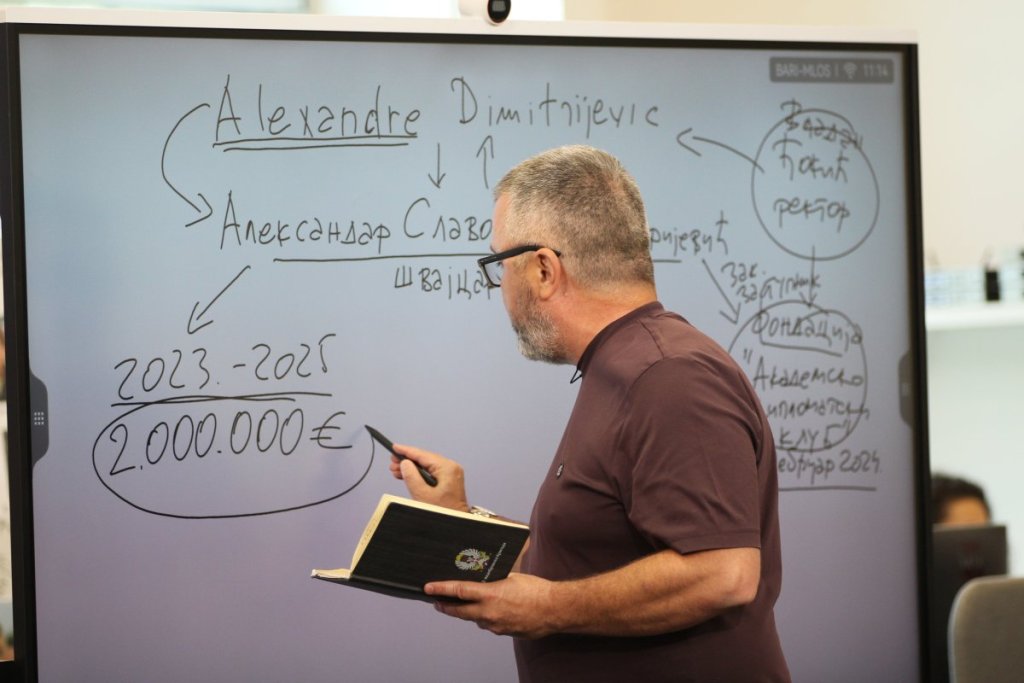 BARI-MLOS 11:14
Alexandre Dimitrijevic
Владан
Ђокић
ректор
Александар Славо ријевић
швајцар
зак.
заступник
Фондација
"Академско
дипломатски
клуб"
фебруар 2024.
2023.-2025
2.000.000€